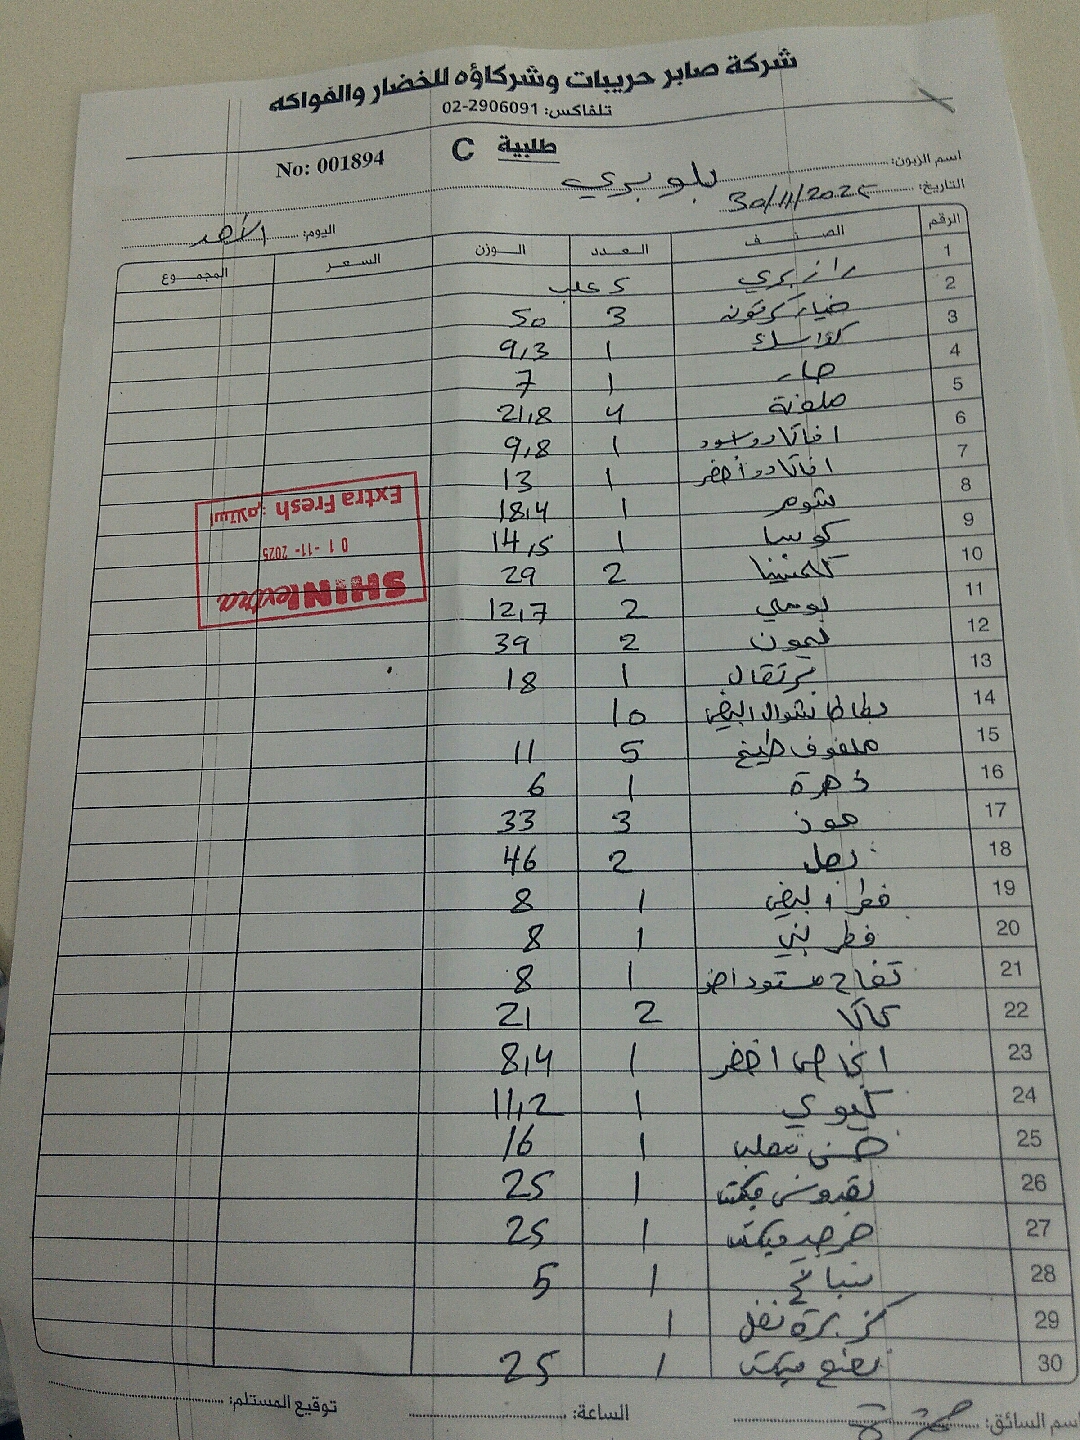 شركة صابر حريبات وشركاؤه للخضار والفواكه
تلفاكس: 02-2906091
No: 001894 C طلبية
اسم الزبون: بلو بري
التاريخ: 30/11/2025
اليوم: الأحد
الرقم الصنف العدد الوزن السعر المجموع
1 رازبري 5 علب
2 خيار كرتونه 3 50
3 1 9,3
4 حار 1 7
5 ملونة 4 21,8
6 افاكادو اسود 1 9,8
7 افاكادو أخضر 1 13
8 شومر 1 18,4
9 كوسا 1 14,5
10 كلمنتينا 2 29
11 بوملي 2 12,7
12 ليمون 2 39
13 برتقال 1 18
14 بطاطا شوال ابيض 10
15 ملفوف طبيخ 5 11
16 زهرة 1 6
17 موز 3 33
18 بصل 2 46
19 فطر ابيض 1 8
20 فطر بني 1 8
21 تفاح 1 8
22 كاكا 2 21
23 انجاص اخضر 1 8,4
24 كيوي 1 11,2
25 1 16
26 بقدونس مكتب 1 25
27 جرجير مكتب 1 25
28 سبانخ 1 5
29 كزبرة نفل 1
30 نعنع مكتب 1 25
استلام: Extra Fresh
01-11-2025
SHINIextra
اسم السائق:
الساعة:
توقيع المستلم: